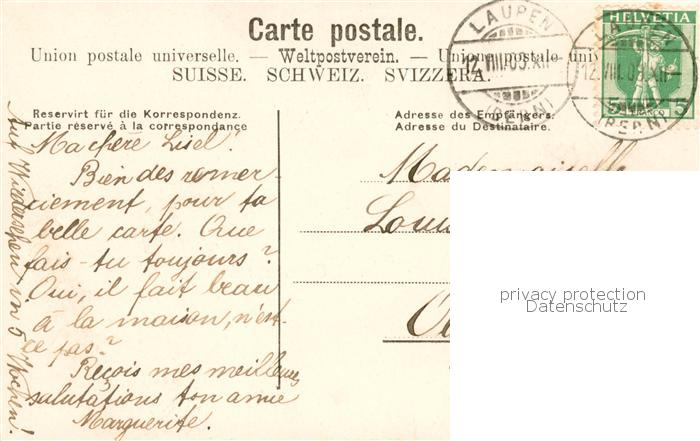 Carte postale.
Union postale universelle. — Weltpostverein. — Unione postale univ
SUISSE. SCHWEIZ. SVIZZERA.
HELVETIA
5 5
LAUPEN
12.VIII.09.XII
(BERN)
LAUPEN
12.VIII.09.XII
(BERN)
Reservirt für die Korrespondenz.
Partie réservé à la correspondance
Adresse des Empfängers.
Adresse du Destinataire.
Ma chère Lisel!
Bien des remer-
ciement, pour ta
belle carte. Que
fais-tu toujours?
Oui, il fait beau
à la maison, n'est-
ce pas?
Reçois mes meilleures
salutations ton amie
Marguerite.
Auf Wiedersehen in 5 Wochen!
Mademoiselle
privacy protection
Datenschutz